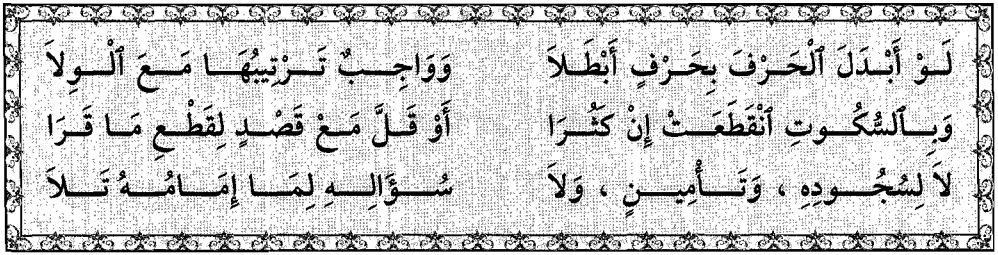 لَوْ أَبْدَلَ ٱلْحَرْفَ بِحَرْفٍ أَبْطَلاَ وَوَاجِبٌ تَرْتِيبُهَا مَعَ ٱلْوِلاَ
وَبِٱلسُّكُوتِ ٱنْقَطَعَتْ إِنْ كَثُرَا أَوْ قَلَّ مَعْ قَصْدٍ لِقَطْعِ مَا قَرَا
لاَ لِسُجُودِهِ ، وَتَأْمِينٍ ، وَلاَ سُؤَالِهِ لِمَا إِمَامُهُ تَلاَ